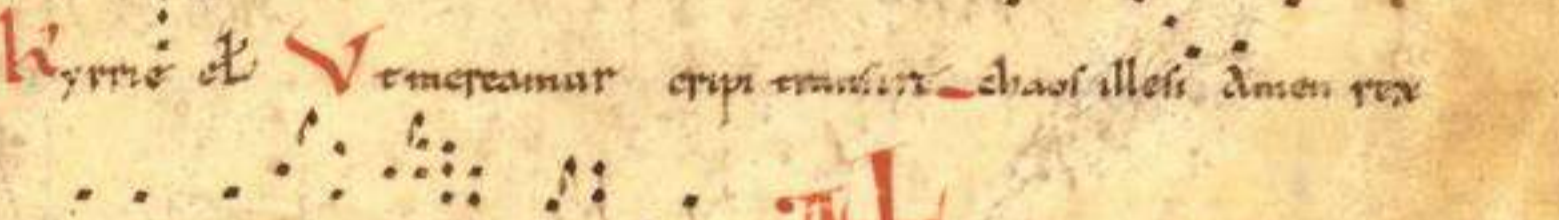 Kyrrie el Vt mereamur eripi transire chaos illesi Amen rex